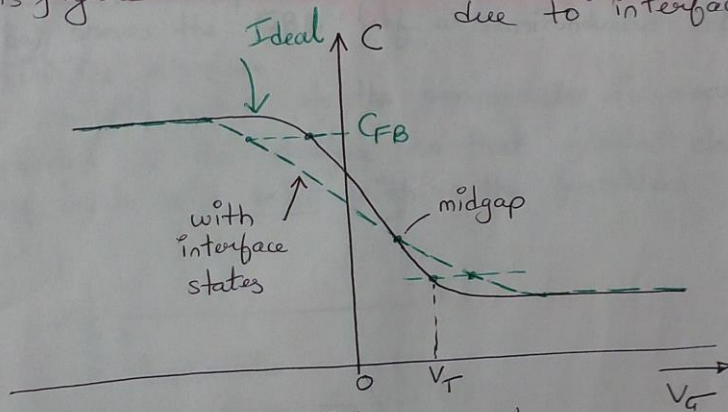 due to interfac
Ideal
C
CFB
midgap
with
interface
states
O
VT
VG